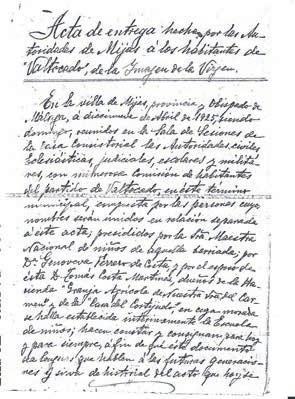 Acta de entrega hecha por las Au-
toridades de Mijas á los habitantes de
"Valtocado", de la Imagen de la Virgen.
En la villa de Mijas, provincia y Obispado de
Málaga, á diecinueve de Abril de 1925, siendo
domingo, reunidos en la Sala de Sesiones de
la Casa Consistorial las Autoridades civiles
Eclesiásticas, judiciales, escolares y milita-
res, con numerosa Comisión de habitantes
del partido de Valtocado, en éste término
municipal, compuesta por las personas cuyos
nombres serán unidos en relación separada
á esta acta; presididos por la Sra. Maestra
Nacional de niños de aquella barriada, por
Dª. Genoveva Ferrer de Costa, y por el esposo de
ésta D. Tomás Costa Martínez, dueños de la Ha-
cienda "Granja Agrícola de Nuestra Sra. del Car-
men" y de la del Cortijuelo, en cuya morada
se halla establecida interinamente la Escuela
de niños; hacen constar y consignan, para hoy
y para siempre, á fin de que éste documento
que hablen á las futuras generacio-
nes y sirva de historial del acto que hoy se